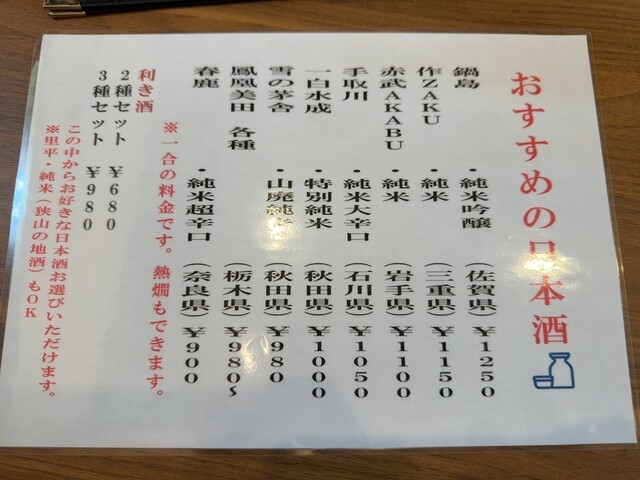 おすすめの日本酒
鍋島 ・純米吟醸 (佐賀県) ¥1250
作ZAKU ・純米 (三重県) ¥1150
赤武AKABU ・純米 (岩手県) ¥1100
手取川 ・純米大辛口 (石川県) ¥1050
一白水成 ・特別純米 (秋田県) ¥1000
雪の茅舎 ・山廃純米 (秋田県) ¥980
鳳凰美田 各種 (栃木県) ¥980~
春鹿 ・純米超辛口 (奈良県) ¥900
※一合の料金です。熱燗もできます。
利き酒
2種セット ¥680
3種セット ¥980
この中からお好きな日本酒お選びいただけます。
※里平・純米(狭山の地酒)もOK